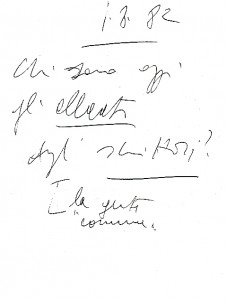 1.8.82
Chi sono oggi
gli alleati
degli scrittori?
È la gente
"comune"